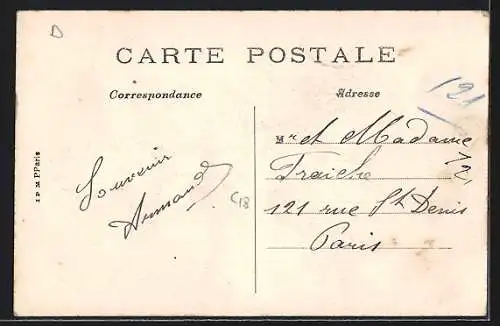 D
CARTE POSTALE
Correspondance
Adresse
121
I P M Paris
Souvenir
Armand
C18
Mr et Madame
Fraiche
121
121 rue St Denis
Paris